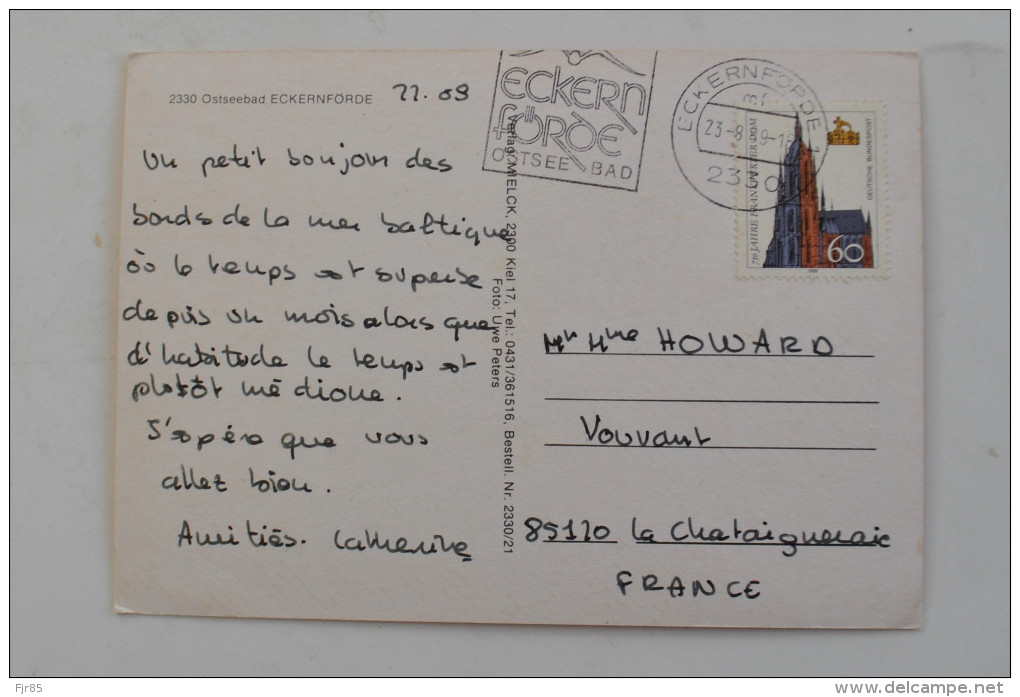 2330 Ostseebad ECKERNFÖRDE
22.09
Un petit bonjour des
bords de la mer baltique
où le temps est superbe
depuis un mois alors que
d'habitude le temps est
plutôt médiocre.
J'espère que vous
allez bien.
Amitiés. Catherine
Verlag: MIELCK, 2300 Kiel 17, Tel.: 0431/361516, Bestell. Nr. 2330/21
Foto: Uwe Peters
ECKERN
FÖRDE
OSTSEE BAD
ECKERNFÖRDE
23-8
2330
750 JAHRE FRANKFURTER DOM
DEUTSCHE BUNDESPOST
60
Mr Mme HOWARD
Vouvant
85120 la Chataigneraie
FRANCE
Fjr85
www.delcampe.net